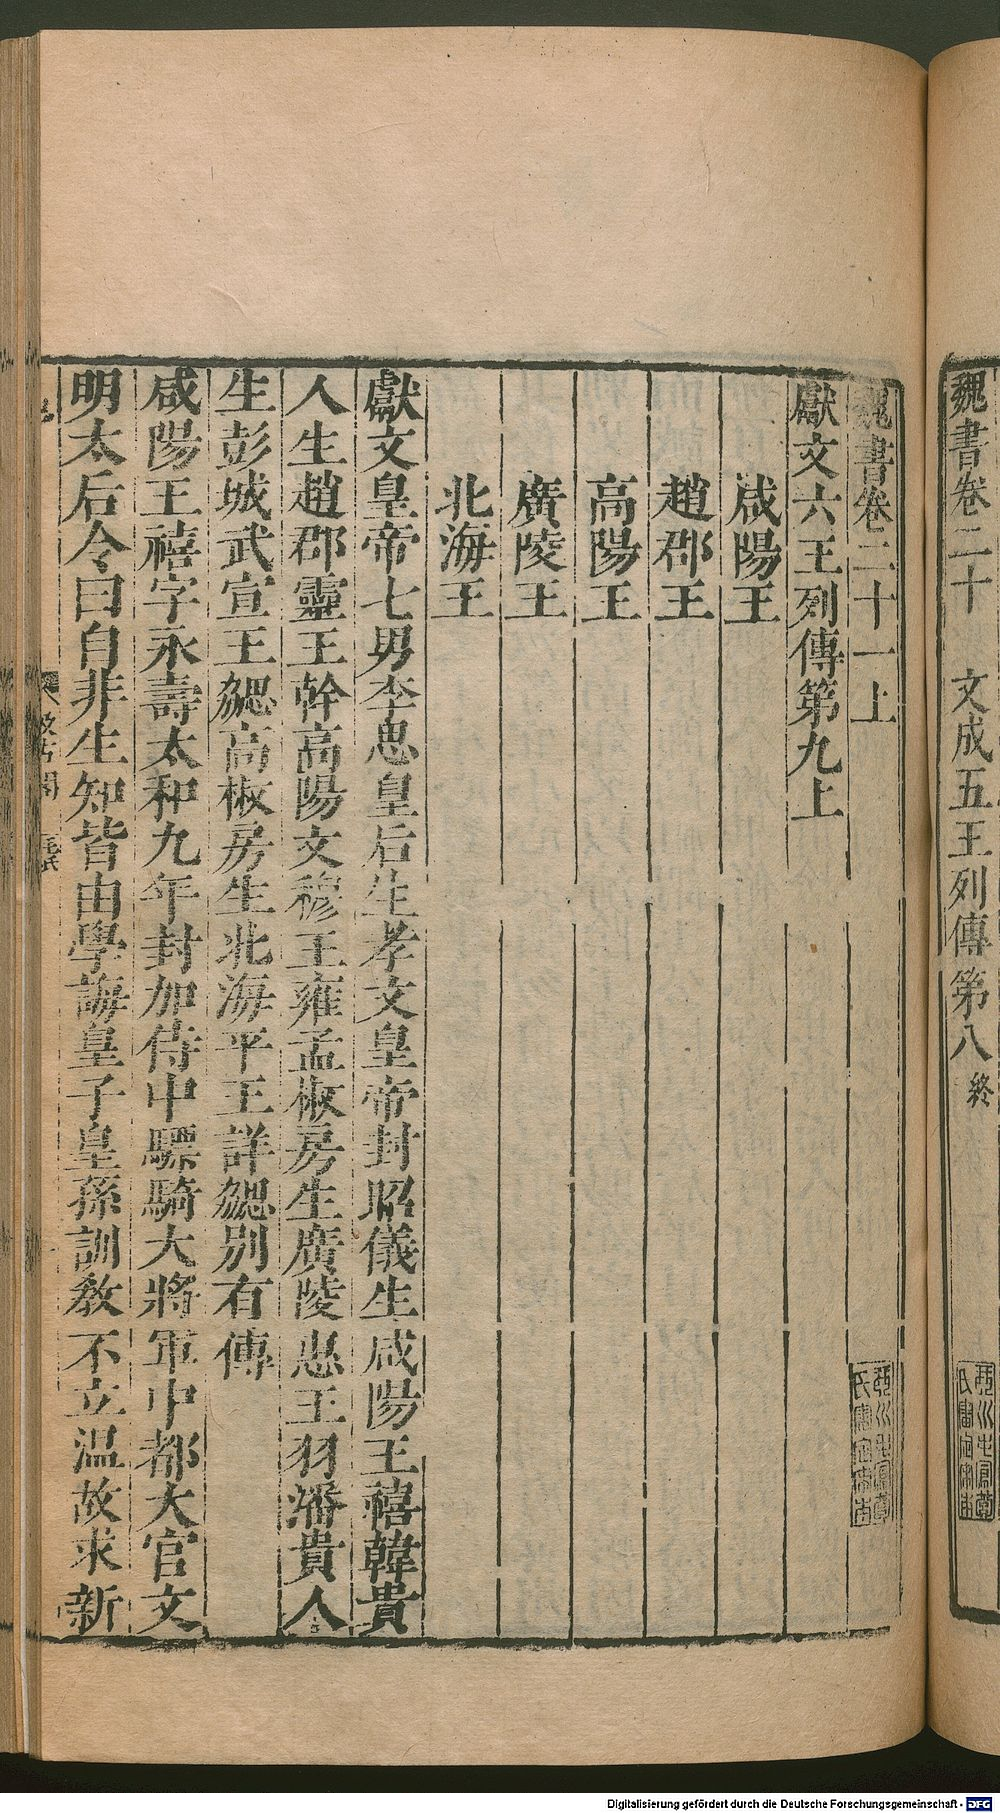 魏書卷二十 文成五王列傳第八 終
魏書卷二十一上
獻文六王列傳第九上
咸陽王
趙郡王
高陽王
廣陵王
北海王
獻文皇帝七男李思皇后生孝文皇帝封昭儀生咸陽王禧韓貴
人生趙郡靈王幹高陽文穆王雍孟椒房生廣陵惠王羽潘貴人
生彭城武宣王勰高椒房生北海平王詳勰別有傳
咸陽王禧字永壽太和九年封加侍中驃騎大將軍中都大官文
明太后令曰自非生知皆由學誨皇子皇孫訓教不立温故求新
汲古閣
毛氏
Digitalisierung gefördert durch die Deutsche Forschungsgemeinschaft - DFG